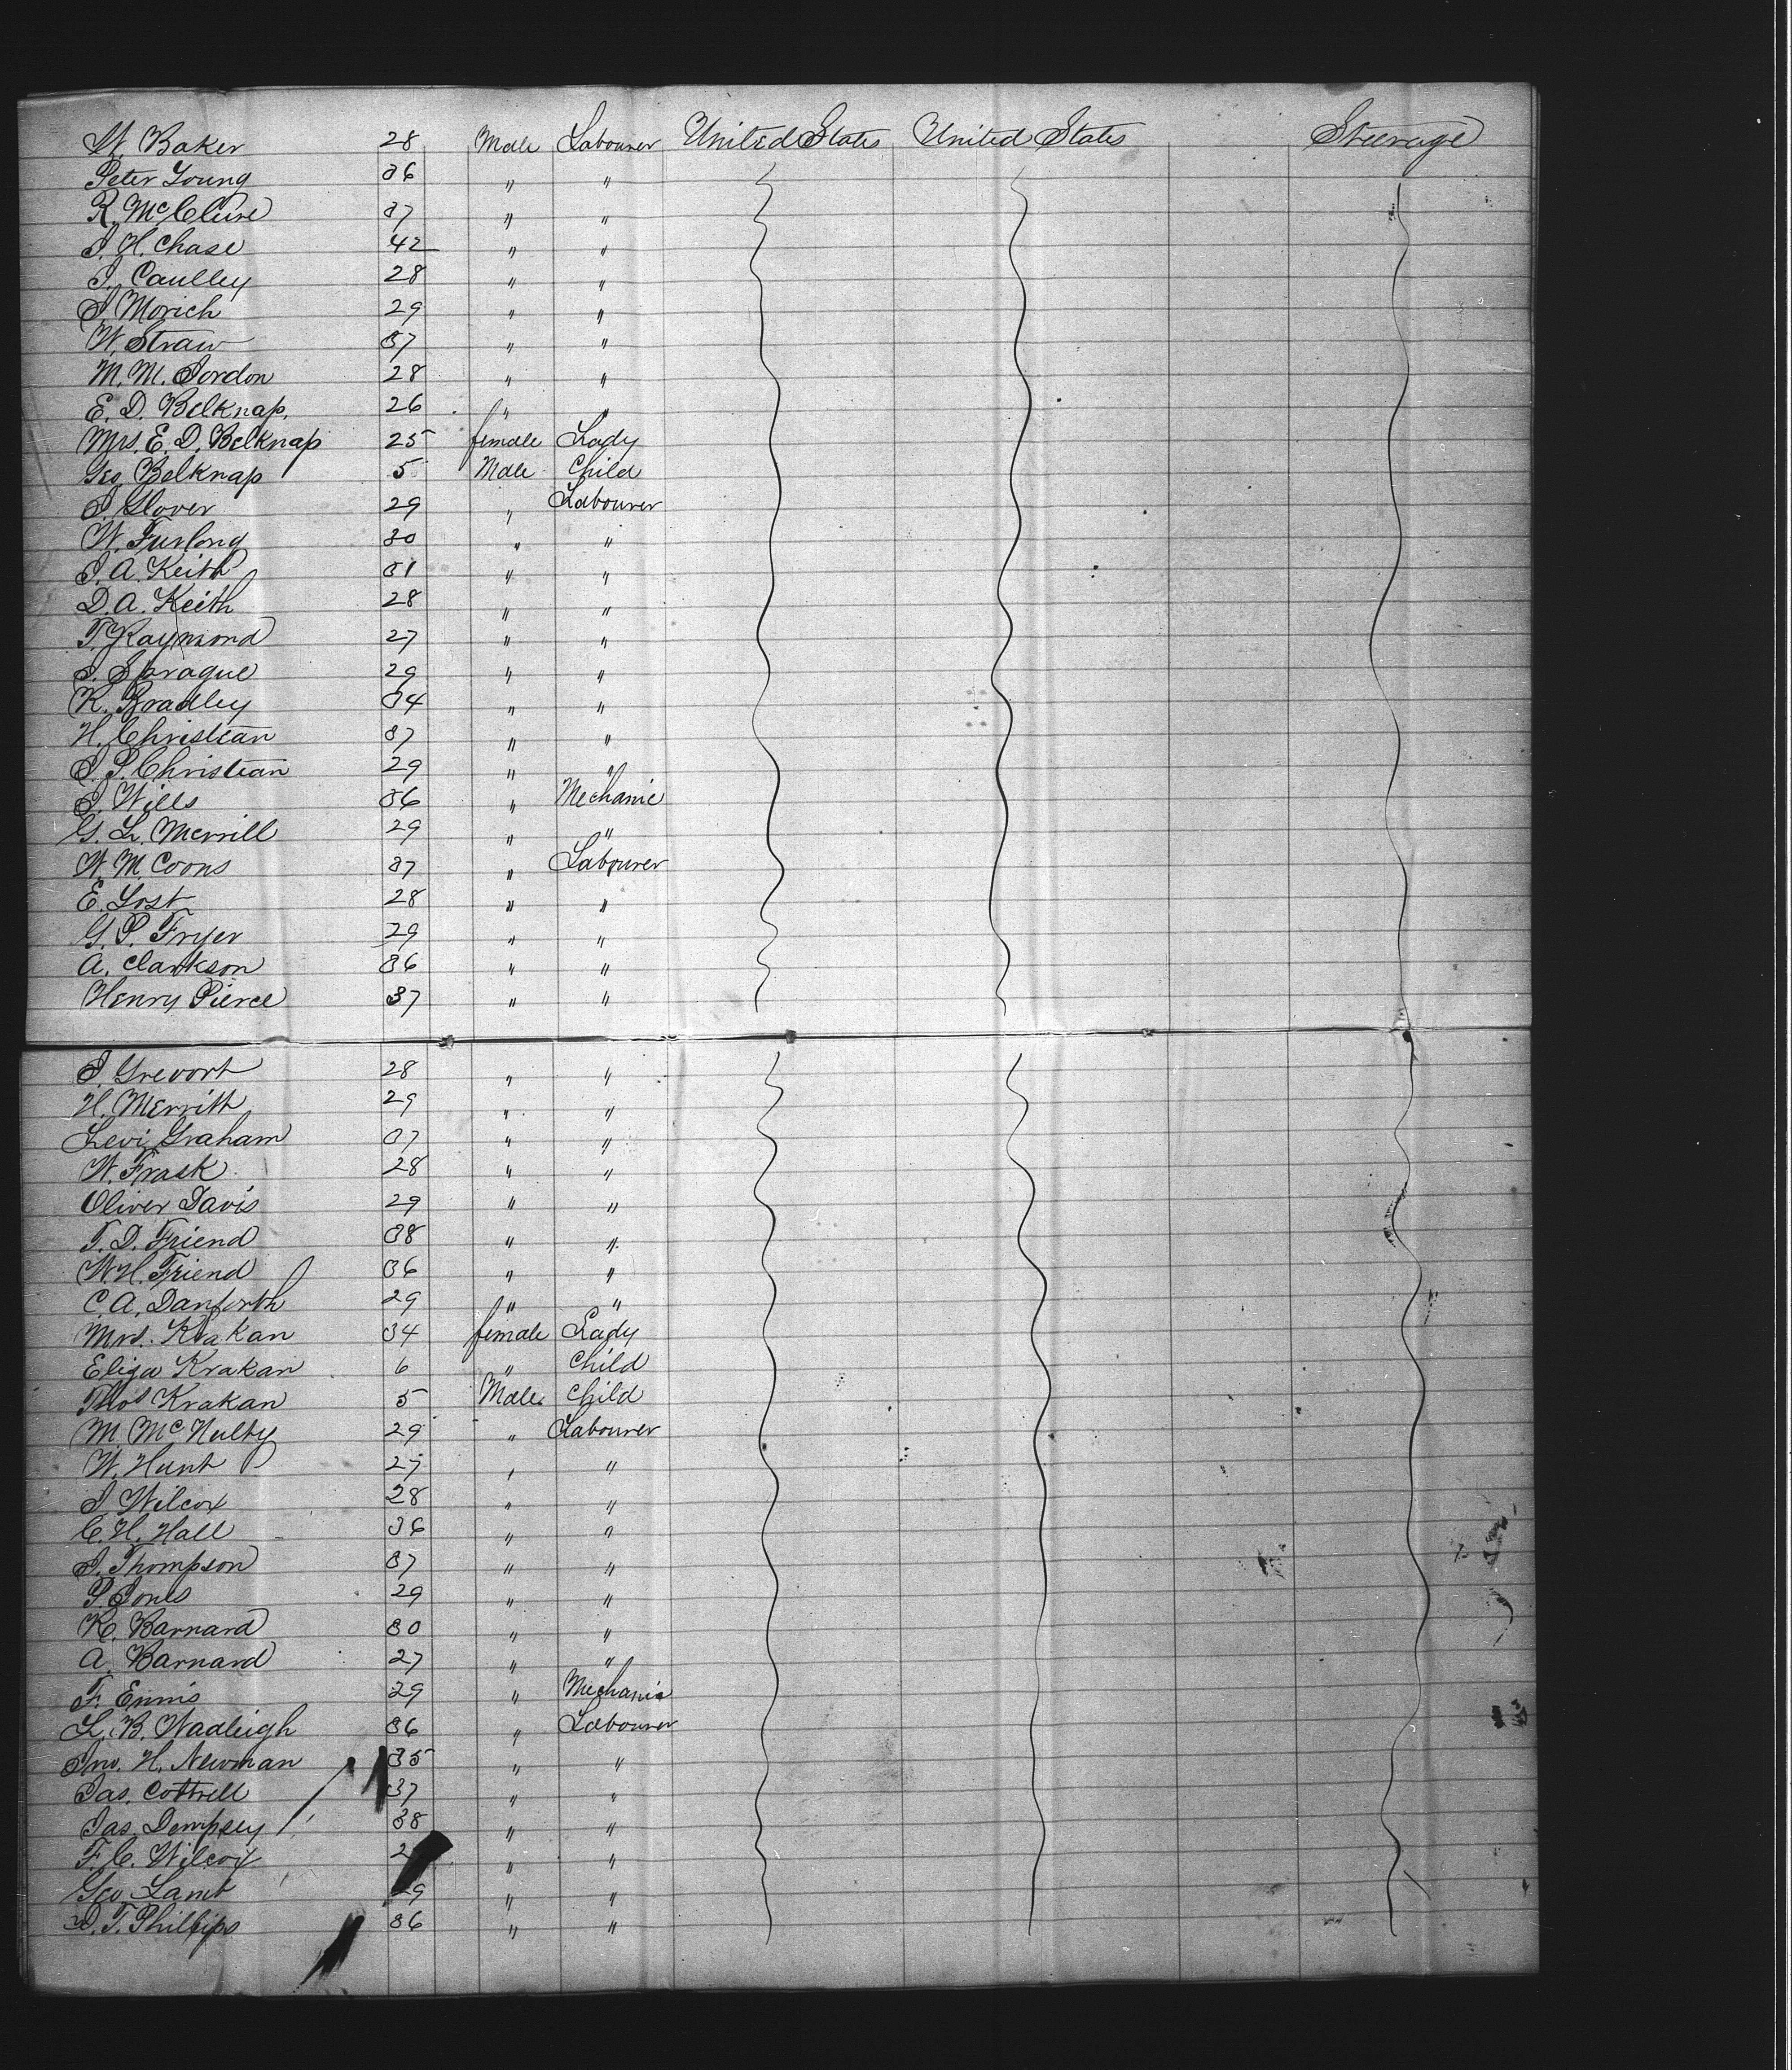 W. Baker 28 Male Labourer United States United States Steerage
Peter Young 36 " "
R. McClure 37 " "
J. H. Chase 42 " "
J. Caulley 28 " "
J. Morich 29 " "
W. Straw 37 " "
M. M. Jordon 28 " "
E. D. Belknap. 26 " "
Mrs. E. D. Belknap 25 female Lady
Geo Belknap 5 Male Child
J. Glover 29 " Labourer
W. Furlong 30 " "
J. A. Keith 31 " "
D. A. Keith 28 " "
T. Raymond 27 " "
J. Sprague 29 " "
K. Bradley 34 " "
H. Christian 37 " "
J. P. Christian 29 " "
J. Wills 36 " Mechanic
G. L. Merrill 29 " "
W. M. Coons 37 " Labourer
E. Yost 28 " "
G. P. Fryer 29 " "
A. Clarkson 36 " "
Henry Pierce 37 " "
J. Grevort 28 " "
H. Merritt 29 " "
Levi Graham 37 " "
W. Frask 28 " "
Oliver Davis 29 " "
T. D. Friend 38 " "
W. H. Friend 36 " "
C. A. Danforth 29 " "
Mrs. Krakan 34 female Lady
Eliza Krakan 6 " Child
Thos Krakan 5 Male Child
M McNulty 29 " Labourer
W. Hunt 27 " "
J Wilcox 28 " "
C. H. Hall 36 " "
J. Thompson 37 " "
P. Jones 29 " "
K. Barnard 30 " "
A. Barnard 27 " "
F. Ennis 29 " Mechanic
L. B. Wadleigh 36 " Labourer
Jno. H. Newman 35 " "
Jas. Cottrell 37 " "
Jas. Dempsey 38 " "
F. C. Wilcox " "
Geo Lamb 29 " "
D. T. Phillips 36 " "